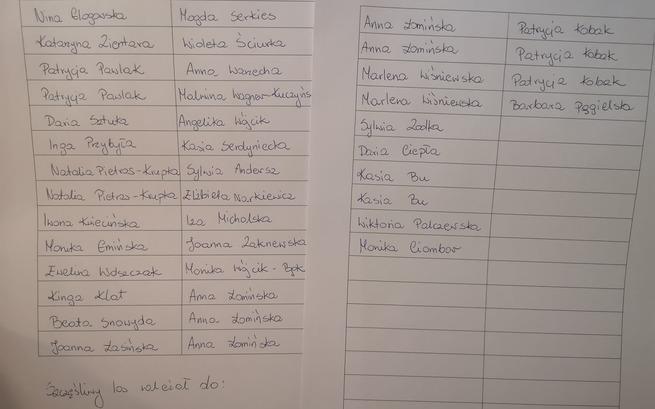 Nina Glogowska Magda Serkies
Katarzyna Zientara Wioleta Ściurka
Patrycja Pawlak Anna Warzecha
Patrycja Pawlak Malwina Wagner-Kuczyńs
Daria Sztuka Angelika Wójcik
Inga Przybyła Kasia Serdyniecka
Natalia Pietras-Krupka Sylwia Andersz
Natalia Pietras-Krupka Elżbieta Narkiewicz
Iwona Kwiecińska Iza Micholska
Monika Emińska Joanna Żaknewska
Ewelina Monika Wójcik -
Kinga Klat Anna Łomińska
Beata Snowyda Anna Łomińska
Joanna Łasińska Anna Łomińska
Szczęśliwy los wleciał do:
Anna Łomińska Patrycja Kobak
Anna Łomińska Patrycja Kobak
Marlena Wiśniewska Patrycja Kobak
Marlena Wiśniewska Barbara Pęgielska
Sylwia Żodka
Daria Ciepła
Kasia Bu
Kasia Bu
Wiktoria Palczewska
Monika Ciombor